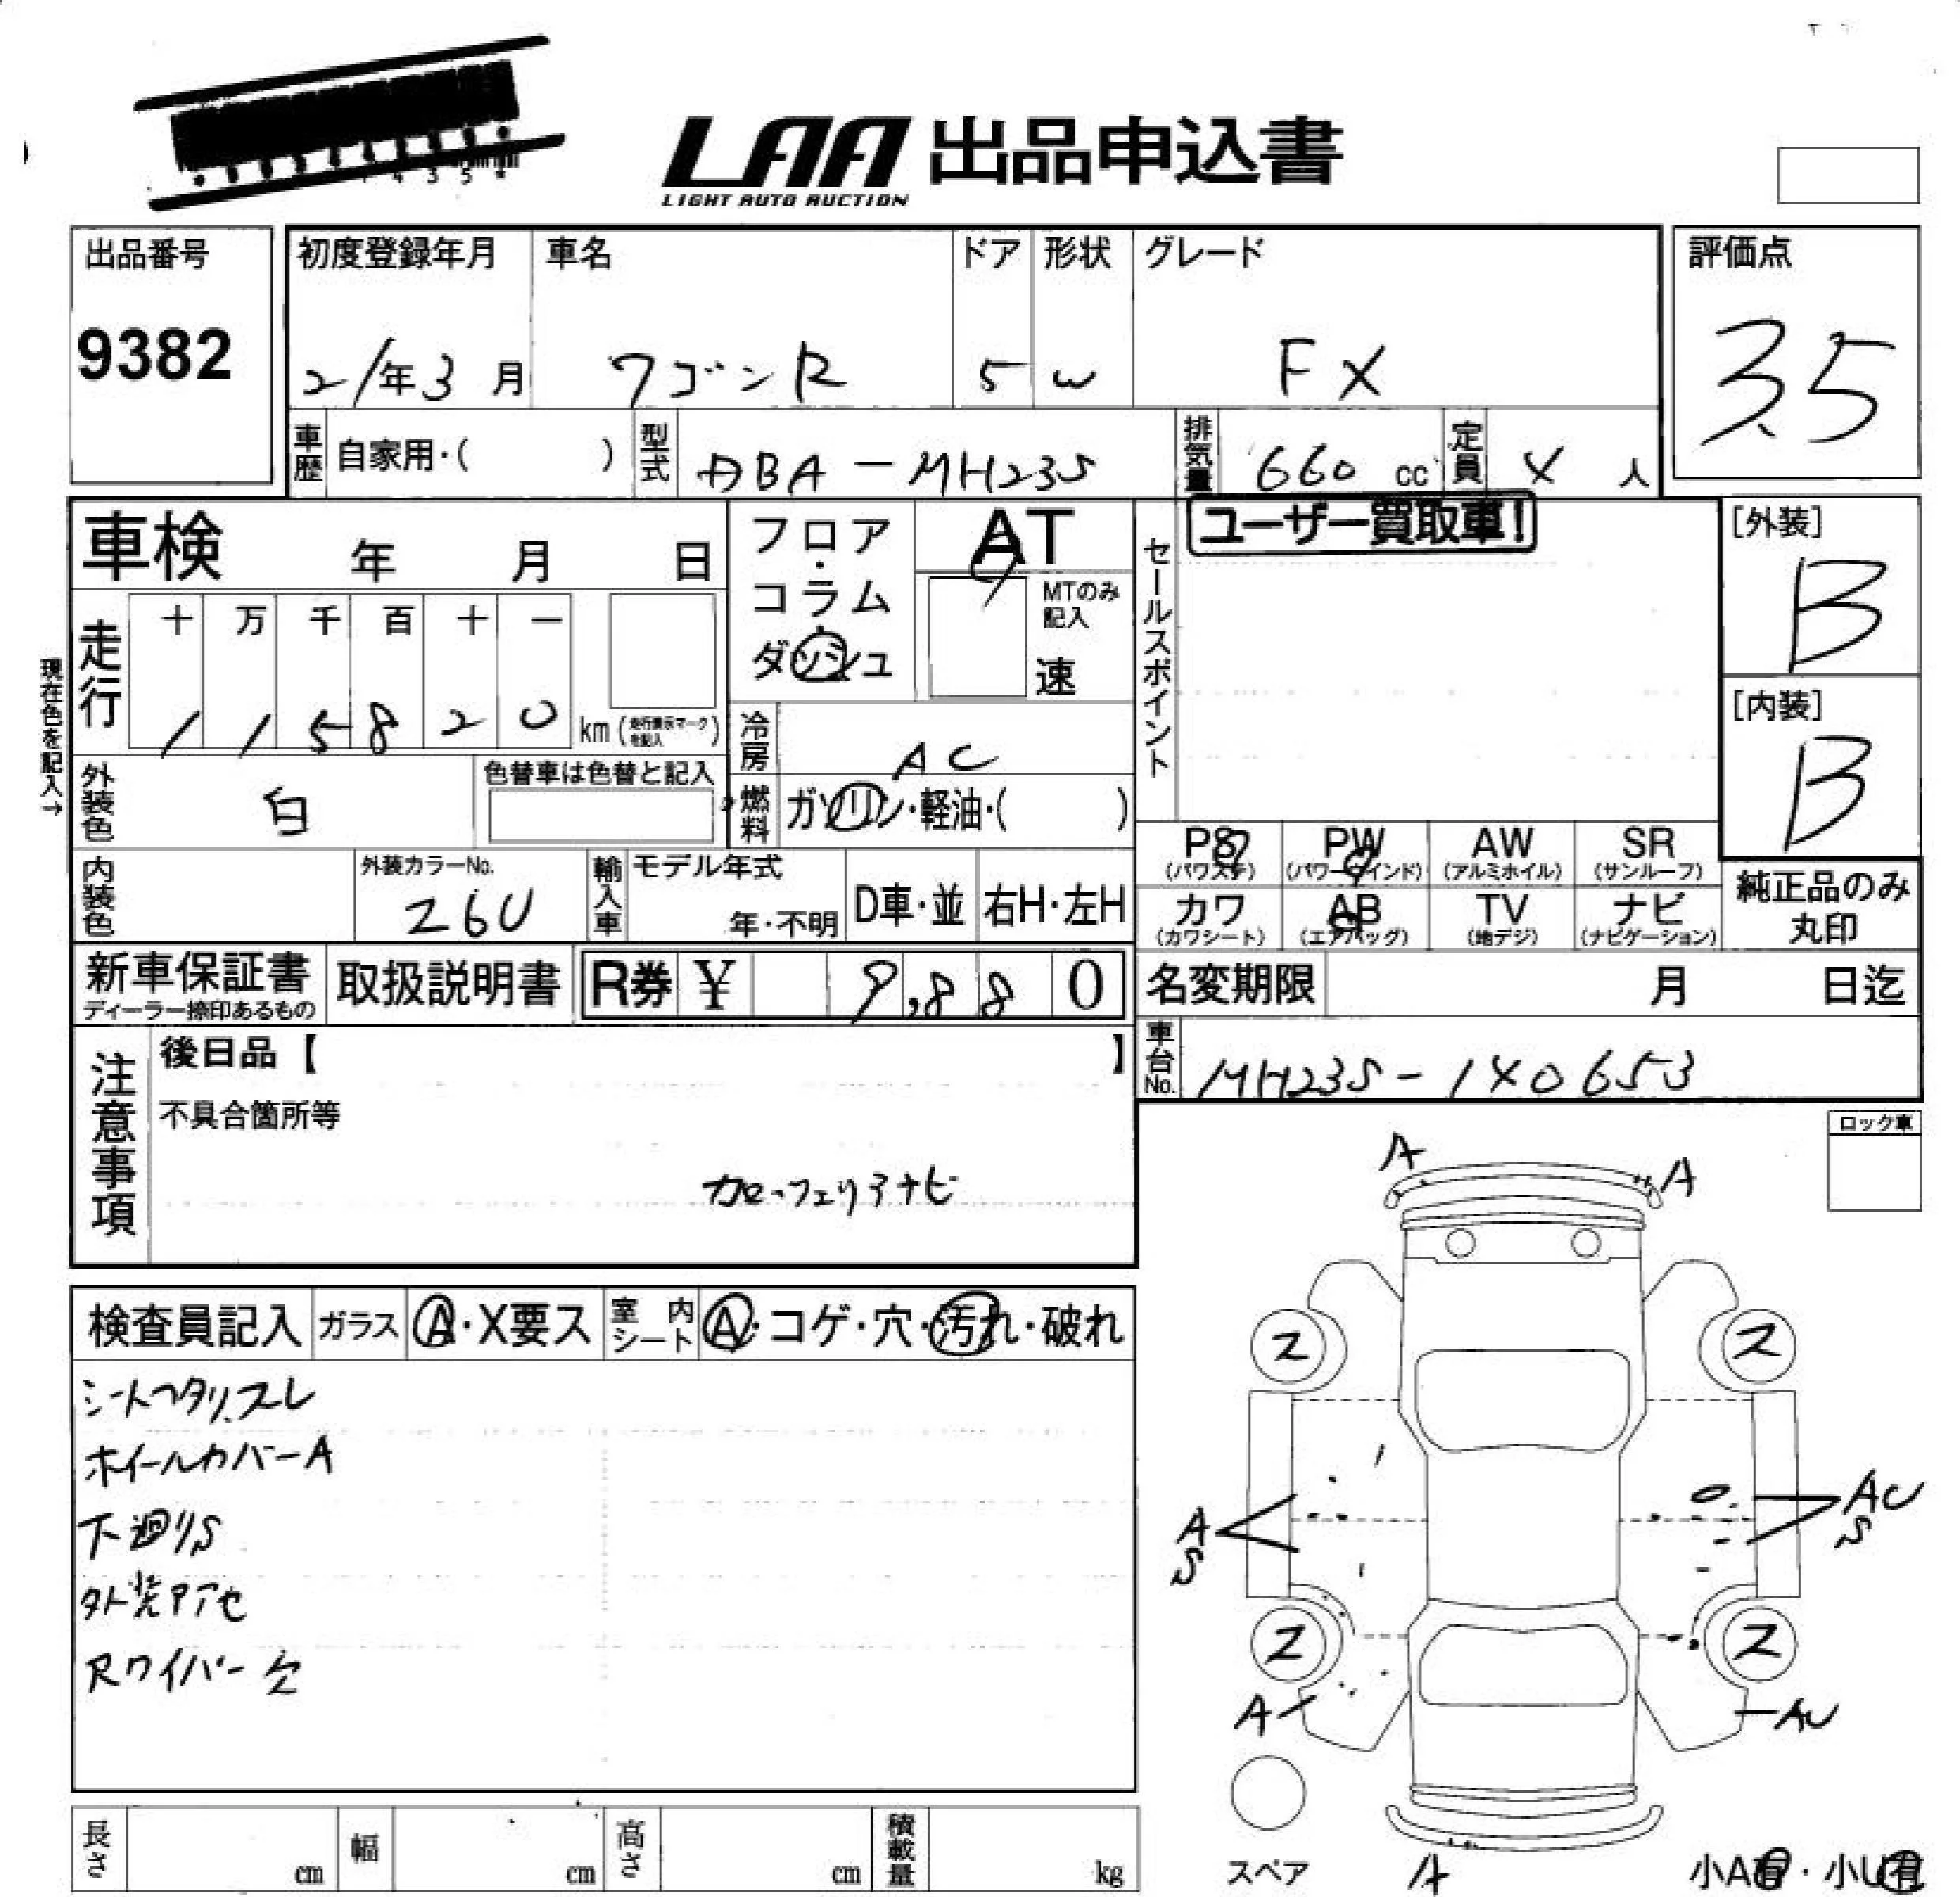 LAA 出品申込書
LIGHT AUTO AUCTION
出品番号
9382
初度登録年月
21年3月
車名
ワゴンR
ドア
5
形状
W
グレード
FX
評価点
3.5
車歴 自家用・( )
型式 DBA-MH23S
排気量 660 cc
定員 4 人
車検 年 月 日
走行
十 万 千 百 十 一
1 1 5 8 2 0 km (走行表示マークを記入)
現在色を記入→
外装色 白
色替車は色替と記入
内装色
外装カラーNo.
26U
フロア
・
コラム
・
ダッシュ
AT
MTのみ記入
速
冷房 AC
燃料 ガソリン・軽油・( )
輸入車 モデル年式
年・不明
D車・並
右H・左H
新車保証書
ディーラー捺印あるもの
取扱説明書
R券 ¥ 9,880
セールスポイント
ユーザー買取車!
[外装]
B
[内装]
B
PS (パワステ)
PW (パワーウインド)
AW (アルミホイル)
SR (サンルーフ)
カワ (カワシート)
AB (エアバッグ)
TV (地デジ)
ナビ (ナビゲーション)
純正品のみ
丸印
名変期限 月 日迄
車台No. MH23S-140653
注意事項
後日品【 】
不具合箇所等
カロッツェリアナビ
ロック車
検査員記入 ガラス A・X要ス 室内シート A・コゲ・穴・汚れ・破れ
シートヘタリ、スレ
ホイールカバーA
下廻りS
外装アセ
Rワイパー欠
A
A
ス
ス
A
S
AU
S
ス
ス
A
AU
A
スペア
小A有・小U有
長さ cm
幅 cm
高さ cm
積載量 kg